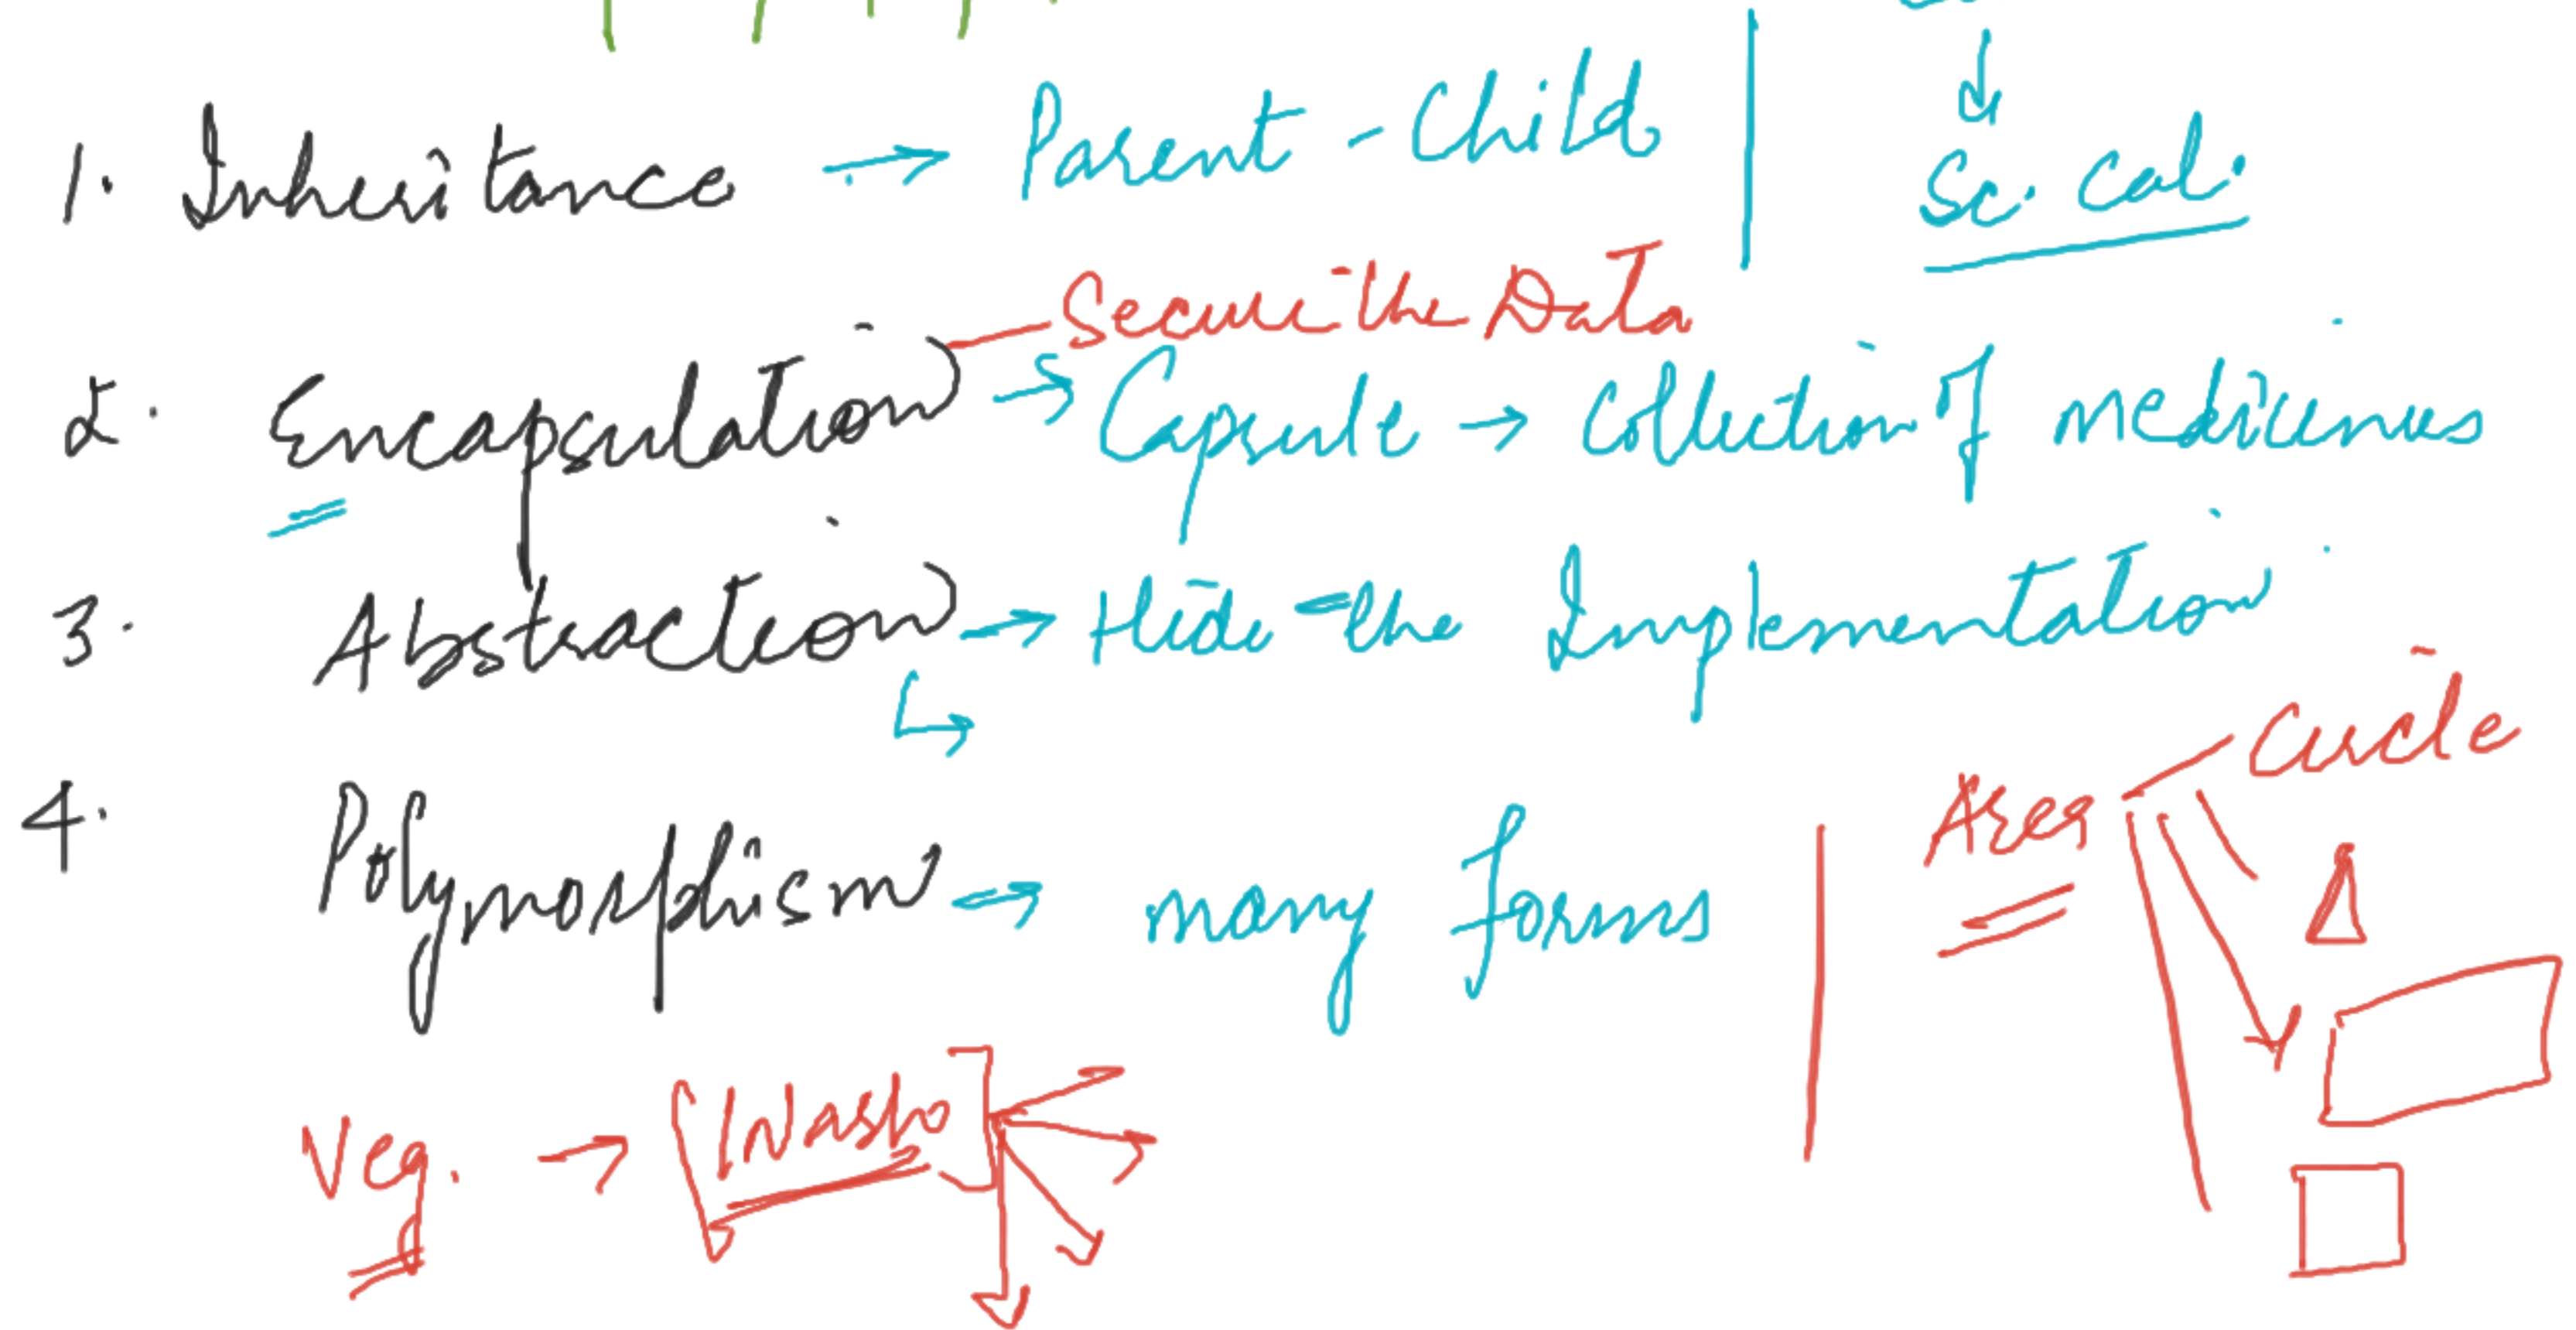 1. Inheritance → Parent - Child
Sc. Cal.
Secure the Data
2. Encapsulation → Capsule → Collection of medicines
3. Abstraction → Hide the Implementation
Circle
4. Polymorphism → many forms
Area
Veg. → [Wash]